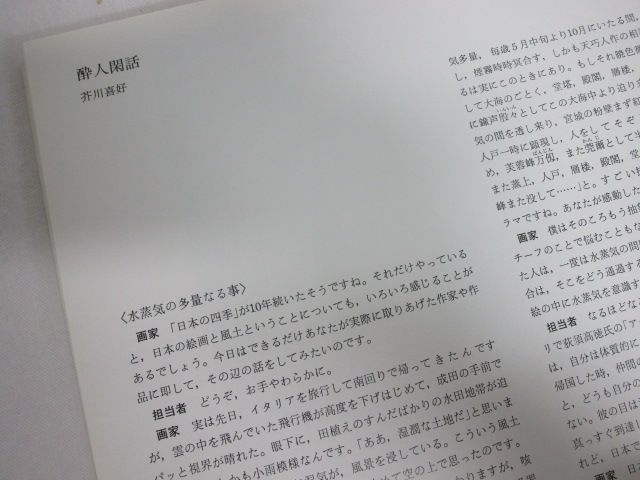 酔人閑話
芥川喜好
〈水蒸気の多量なる事〉
画家 「日本の四季」が10年続いたそうですね。それだけやっている
と，日本の絵画と風土ということについても，いろいろ感じることが
あるでしょう。今日はできるだけあなたが実際に取りあげた作家や作
品に即して，その辺の話をしてみたいのです。
担当者 どうぞ，お手やわらかに。
画家 実は先日，イタリアを旅行して南回りで帰ってきたんです
が，雲の中を飛んでいた飛行機が高度を下げはじめて，成田の手前で
パッと視界が晴れた。眼下に，田植えのすんだばかりの水田地帯が迫
しかも小雨模様なんです。「ああ，湿潤な土地だ」と思いま
気が，風景を浸している。こういう風土
めて空の上で思ったのです。
かりますが，咳
気多量，毎歳5月中旬より10月にいたる間，
し，煙霧時時冥合す，しかも天巧人作の相
るは実にこのときにあり。もしそれ暁色
して大海のごとく，堂塔，殿閣，層楼，
に鐘声殷々としてこの大海中より迫り
いんいん
気の間を透し来り，宮城の粉壁まず紅
人戸一時に顕現し，人をしてそぞ
め，芙蓉峰万仭，また莞爾として半
ばんじん
かんじ
また蒸上，人戸，層楼，殿閣，堂
峰また没して……」と。すごい
ラマですね。あなたが感動した
画家 僕はそのころもう抽
チーフのことで悩むこともな
た人は，一度は水蒸気の問
合は，そこをどう通過する
絵の中に水蒸気を意識す
担当者 なるほどな
リで荻須高徳氏の「ア
は，自分は体質的に
帰国した時，仲間の
と，どうも自分の
ない。彼の目は
真っすぐ到達し
れど，日本で
画家 日本